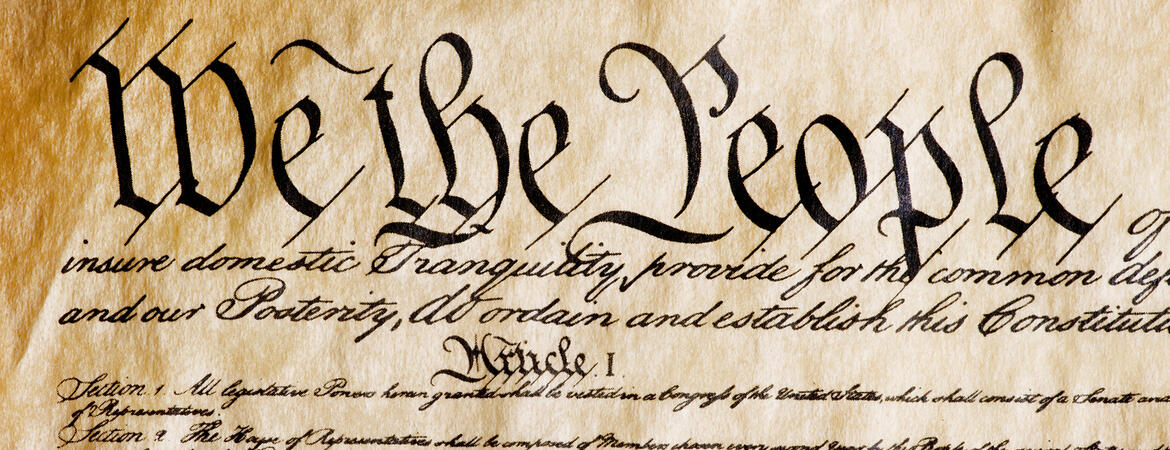 We the People of
insure domestic Tranquility, provide for the common def
and our Posterity, do ordain and establish this Constituti
Article. I.
Section. 1. All legislative Powers herein granted shall be vested in a Congress of the United States, which shall consist of a Senate and
of Representatives.
Section. 2. The House of Representatives shall be composed of Members chosen every second Year by the People of the several